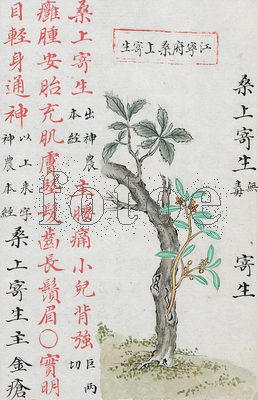 江寧府桑上寄生
桑上寄生 無毒 寄生
桑上寄生 出神農本經 主腰痛小兒背強 巨兩切
癰腫安胎充肌膚堅髮齒長鬚眉○實明
目輕身通神 以上朱字神農本經 桑上寄生主金瘡